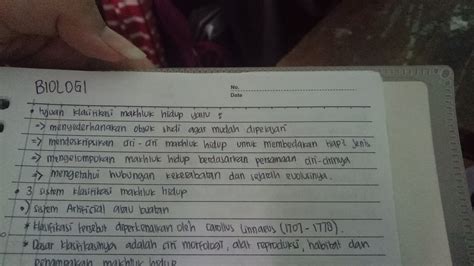 BIOLOGI
No.
Date
• tujuan klasifikasi makhluk hidup yaitu :
=> menyederhanakan objek studi agar mudah dipelajari
=> mendeskripsikan ciri-ciri makhluk hidup untuk membedakan tiap2 jenis
=> mengelompokkan makhluk hidup berdasarkan persamaan ciri-cirinya
=> mengetahui hubungan kekerabatan dan sejarah evolusinya.
• 3 sistem klasifikasi makhluk hidup
•) sistem Artificial atau buatan
* klasifikasi tersebut diperkenalkan oleh carolus Linnaeus (1707-1778).
* Dasar klasifikasinya adalah ciri morfologi, alat reproduksi, habitat dan
penampakan makhluk hidup